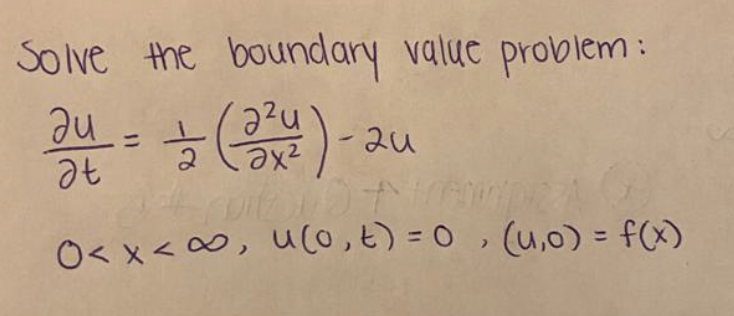 Solve the boundary value problem:
∂u/∂t = 1/2 (∂²u/∂x²) - 2u
0 < x < ∞, u(0,t) = 0 , (u,0) = f(x)